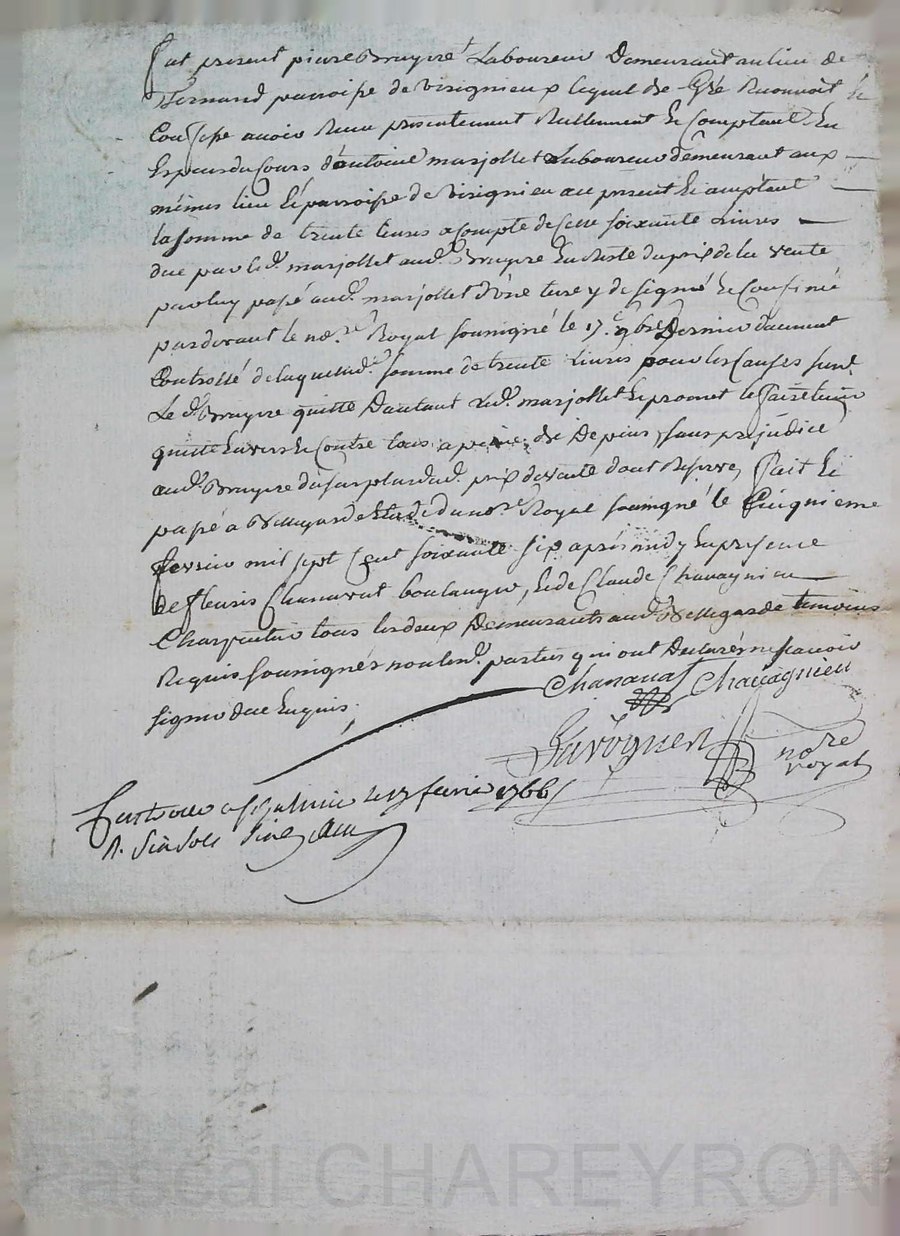 fut present pierre Bruyere Laboureur Demeurant au lieu de
Fernand parroisse de Virignieux lequel de Gré Reconnoît et
Confesse avoir Receu presentement Reellement et Comptant En
Especes du Cours d'antoine marjollet Laboureur demeurant aux
mêmes lieu et parroisse de Virignieu au present et acceptant
la somme de trente livres a compte de Celle soixante Livres
due par led. marjollet aud. Bruyere En Reste du prix de la vente
par luy passé aud. marjollet d'une terre y designé et Confinée
pardevant le nore Royal soussigné le 17e 9bre Dernier dument
Controllé de laquelle d. somme de trente Livres pour les Causes susd.
Le d. Bruyere quitte D'autant Led. marjollet et promet le faire tenir
quitte Envers et Contre tous a peine de Depens, sans prejudice
aud. Bruyere du surplus dud. prix de vente dont Reserve, fait et
passé a Bellegarde Etude du nore Royal soussigné le Cinquieme
fevrier mil sept Cent soixante six après midy En presence
de fleuris Chanavat boulanger, et de Claude Chavagnieu
Charpentier tous les deux Demeurants aud. Bellegarde temoins
Requis soussignés non lesd. parties qui ont Declarés ne sçavoir
signer de ce Enquis,
Chanavat Chavagnieu
nore royal
Controllé a St Galmier le 17 fevrier 1766
R. Six sols Six den
Pascal CHAREYRON